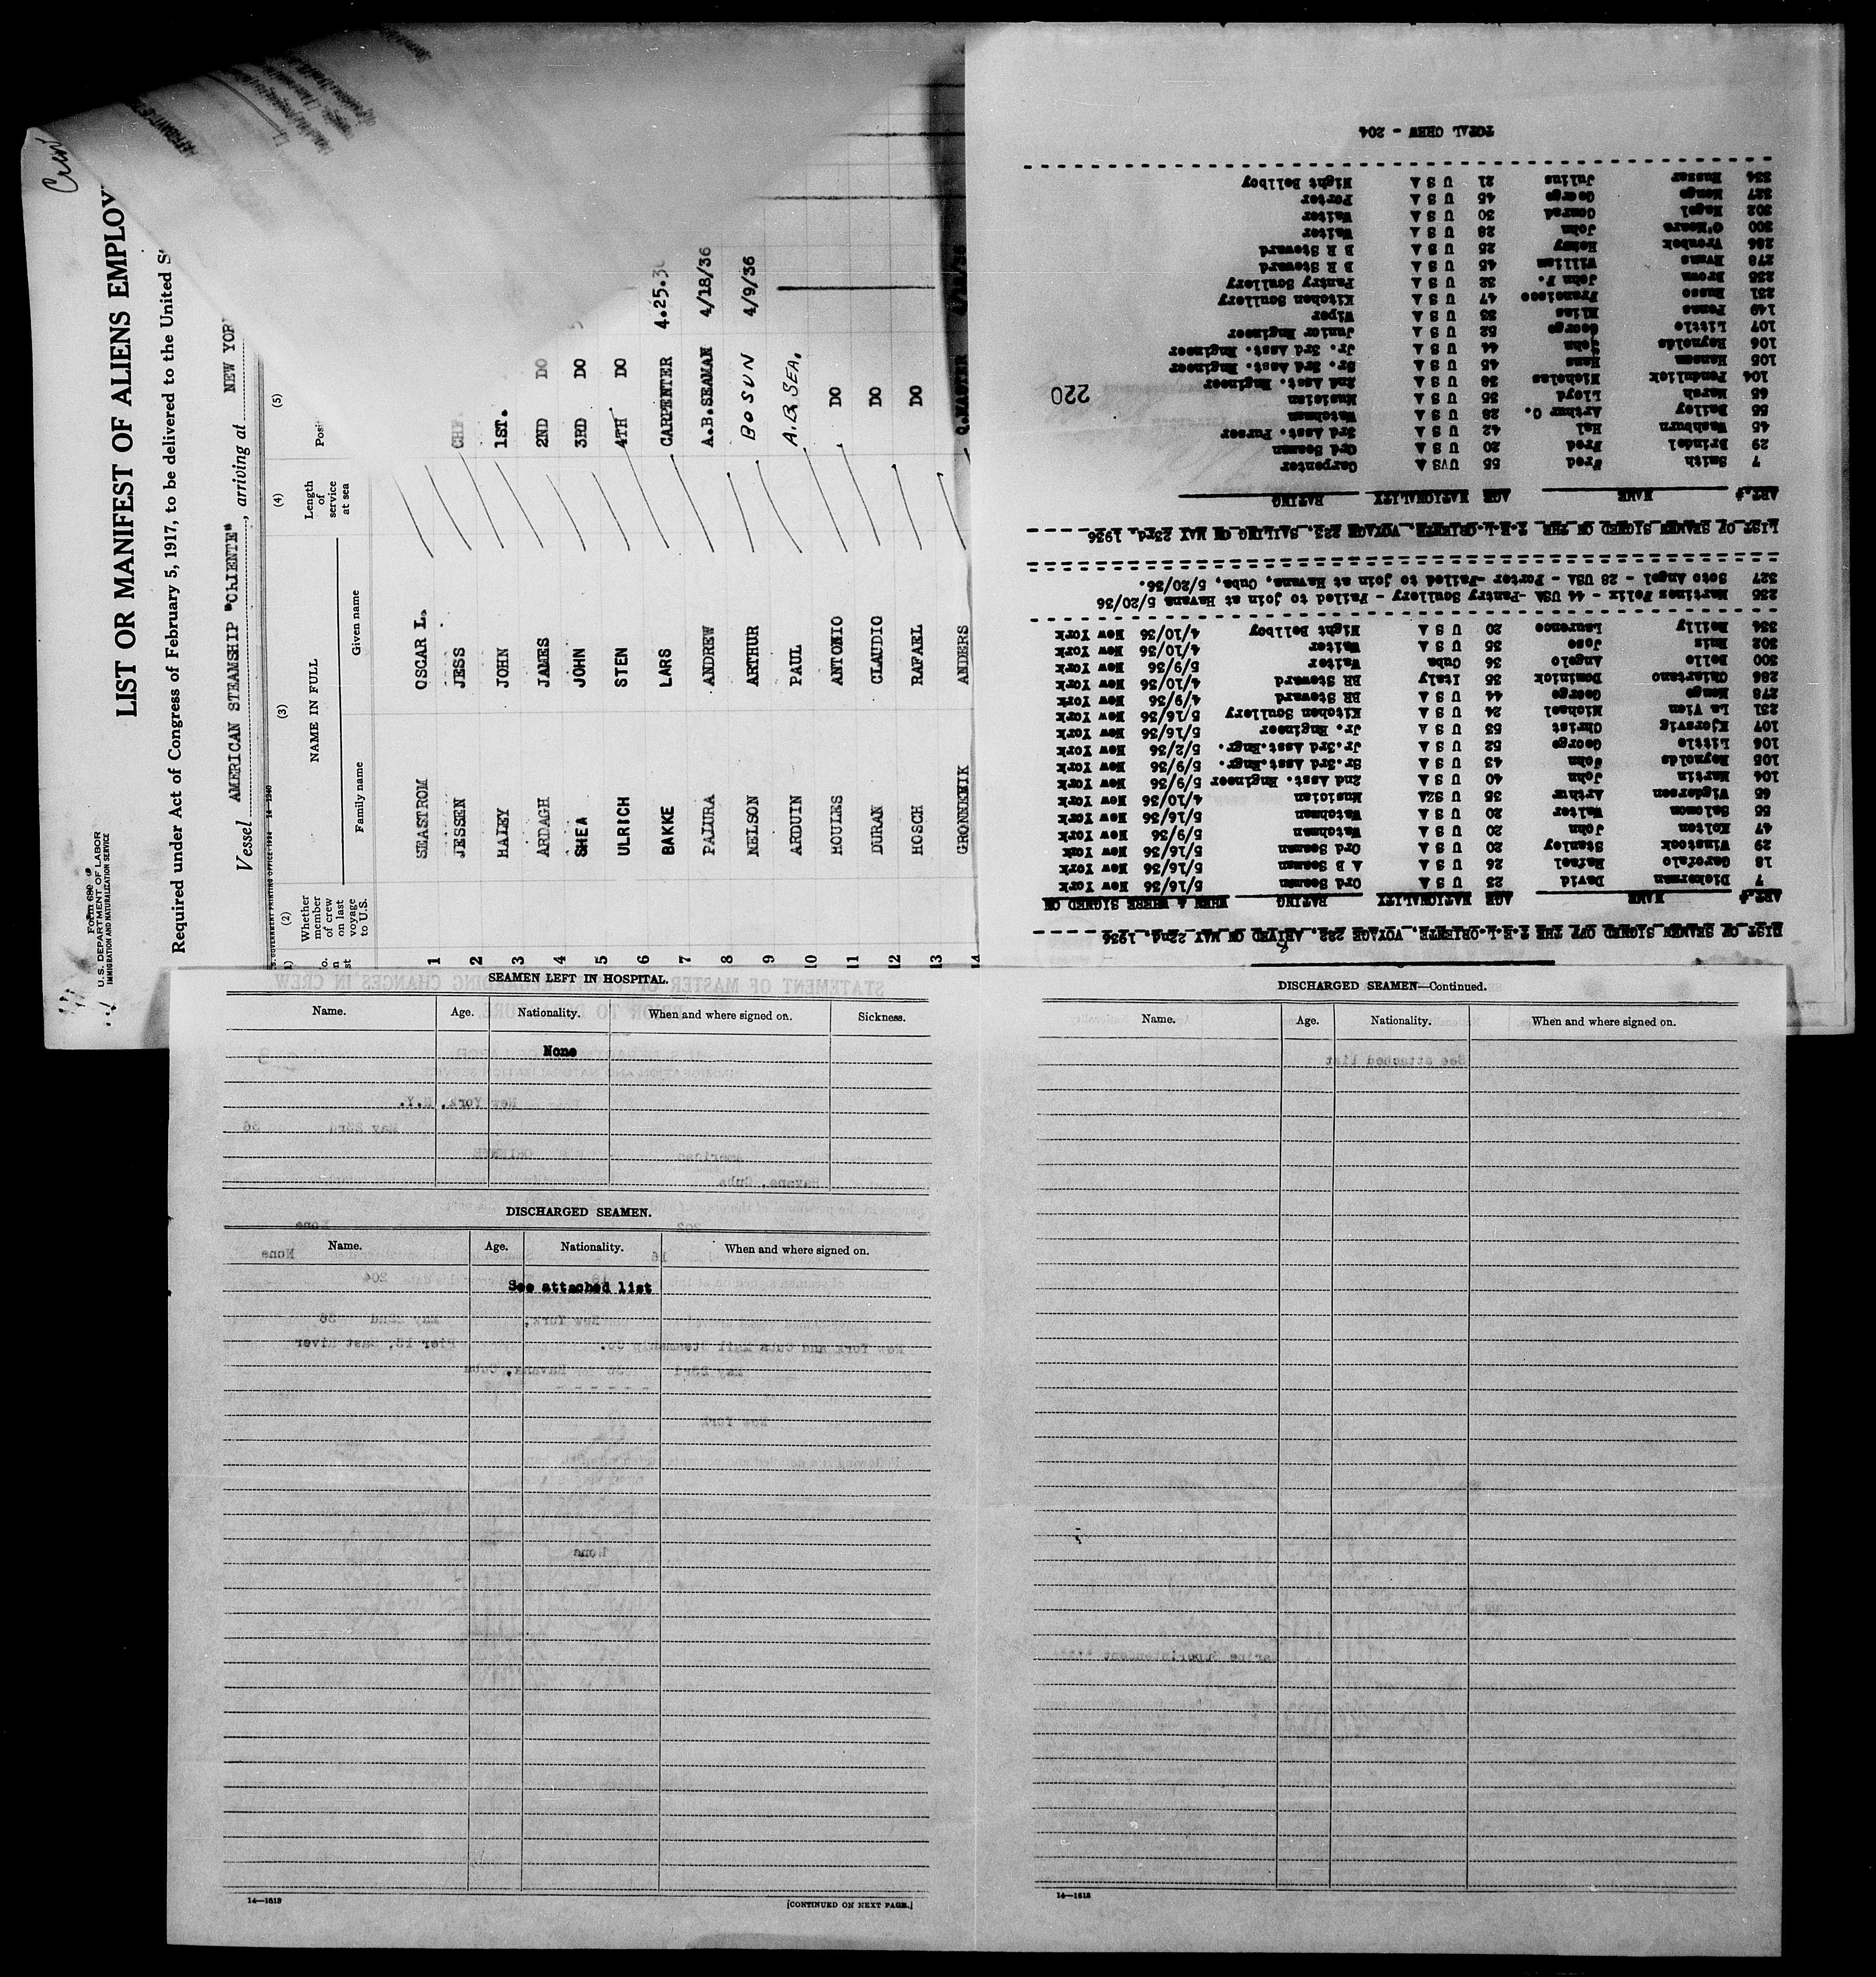 Form 680
U. S. DEPARTMENT OF LABOR
IMMIGRATION AND NATURALIZATION SERVICE
LIST OR MANIFEST OF ALIENS EMPLOY
Required under Act of Congress of February 5, 1917, to be delivered to the United S
Vessel AMERICAN STEAMSHIP "ORIENTE", arriving at NEW YOR
(2) (3) (4) (5)
Whether member of crew on last voyage to U.S.
NAME IN FULL
Family name Given name
Length of service at sea
1 SEASTROM OSCAR L.
2 JESSEN JESS 1ST.
3 HALEY JOHN 2ND DO
4 ARDAGH JAMES 3RD DO
5 SHEA JOHN 4TH DO
6 ULRICH STEN CARPENTER 4.25.36
7 BAKKE LARS A.B.SEAMAN 4/18/36
8 PAJURA ANDREW BOSUN 4/9/36
9 NELSON ARTHUR A.B. SEA.
10 ARDUIN PAUL DO
11 HOULES ANTONIO DO
12 DURAN CLAUDIO DO
13 HOSCH RAFAEL
14 GRONNEKIK ANDERS Q.MASTER
LIST OF SEAMEN SIGNED OFF THE T.E.L.ORIENTE, VOYAGE 222, ARIVED ON MAY 22nd, 1936
ART.# NAME AGE NATIONALITY RATING WHEN & WHERE SIGNED ON
7 Dickerman David 23 U S A Ord Seaman 5/16/36 New York
18 Garofalo Rafael 26 U S A A B Seaman 5/16/36 New York
29 Winstock Stanley 20 U S A Ord Seaman 5/16/36 New York
47 Kolton John 20 U S A Watchman 5/9/36 New York
55 Solomon Walter 20 U S A Watchman 5/16/36 New York
65 Vigdersen Arthur 35 U SZA Musician 4/10/36 New York
104 Martin John 40 U S A 2nd Asst. Engineer 5/9/36 New York
105 Reynolds John 43 U S A Sr.3rd Asst.Engr. 5/9/36 New York
106 Little George 52 U S A Jr.3rd Asst.Engr. 5/2/36 New York
107 Kjorsvig Christ 53 U S A Jr. Engineer 5/16/36 New York
231 La Vien Michael 24 U S A Kitchen Scullery 5/16/36 New York
278 Mongo George 44 U S A BR Steward 4/9/36 New York
286 Chiartano Dominick 35 Italy BR Steward 4/10/36 New York
300 Bello Angelo 36 Cuba Waiter 5/9/36 New York
302 Ruis Jose 35 U S A Waiter 4/10/36 New York
334 Reilly Laurence 20 U S A Night Bellboy 4/10/36 New York
235 Martinez Felix - 44 USA -Pantry Scullery - Failed to join at Havana 5/20/36
327 Soto Angel - 28 USA - Porter -Failed to join at Havana, Cuba, 5/20/36.
LIST OF SEAMEN SIGNED ON THE T.E.L.ORIENTE, VOYAGE 223, SAILING ON MAY 23rd, 1936
ART.# NAME AGE NATIONALITY RATING
7 Smith Fred 55 UVSA Carpenter
29 Brindel Fred 20 U S A Ord Seaman
45 Washburn Hal 42 U S A 3rd Asst. Purser
55 Dailey Arthur C. 28 U S A Watchman
65 Marsh Lloyd 35 U S A Musician
104 Pendulick Nicholas 38 U S A 2nd Asst. Engineer
105 Hansen Hans 45 U S A Sr. 3rd Asst. Engineer
106 Reynolds John 44 U S A Jr. 3rd Asst. Engineer
107 Little George 52 U S A Junior Engineer
149 Penna Elias 33 U S A Wiper
231 Russo Francisco 47 U S A Kitchen Scullery
235 Brown John F. 32 U S A Pantry Scullery
278 Evans William 45 U S A B R Steward
286 Troubek Henry 25 U S A B R Steward
300 O'Meara John 28 U S A Waiter
302 Nagel Conrad 30 U S A Waiter
327 Mongo George 45 U S A Porter
334 Russer Julius 21 U S A Night Bellboy
TOTAL CREW - 204
220
SEAMEN LEFT IN HOSPITAL.
Name. Age. Nationality. When and where signed on. Sickness.
None
DISCHARGED SEAMEN.
Name. Age. Nationality. When and where signed on.
See attached list
14—1613
[CONTINUED ON NEXT PAGE.]
DISCHARGED SEAMEN—Continued.
Name. Age. Nationality. When and where signed on.
See attached list
14—1613